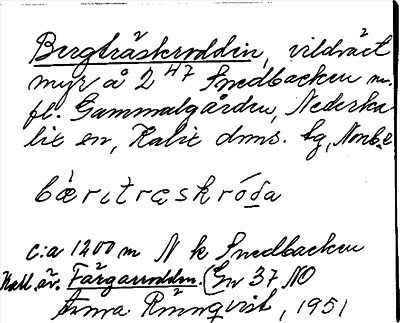 Bergträskrodden, vildväxt
myr å 2 47 Snedbacken m.
fl. Gammalgården, Nederka
lix en, Kalix dms. hg, Norrb.
bæritræskróda
c:a 1200 m N k Snedbacken
Kall. äv. Färgarrodden. (En 37 NO
Anna Rönnqvist, 1951